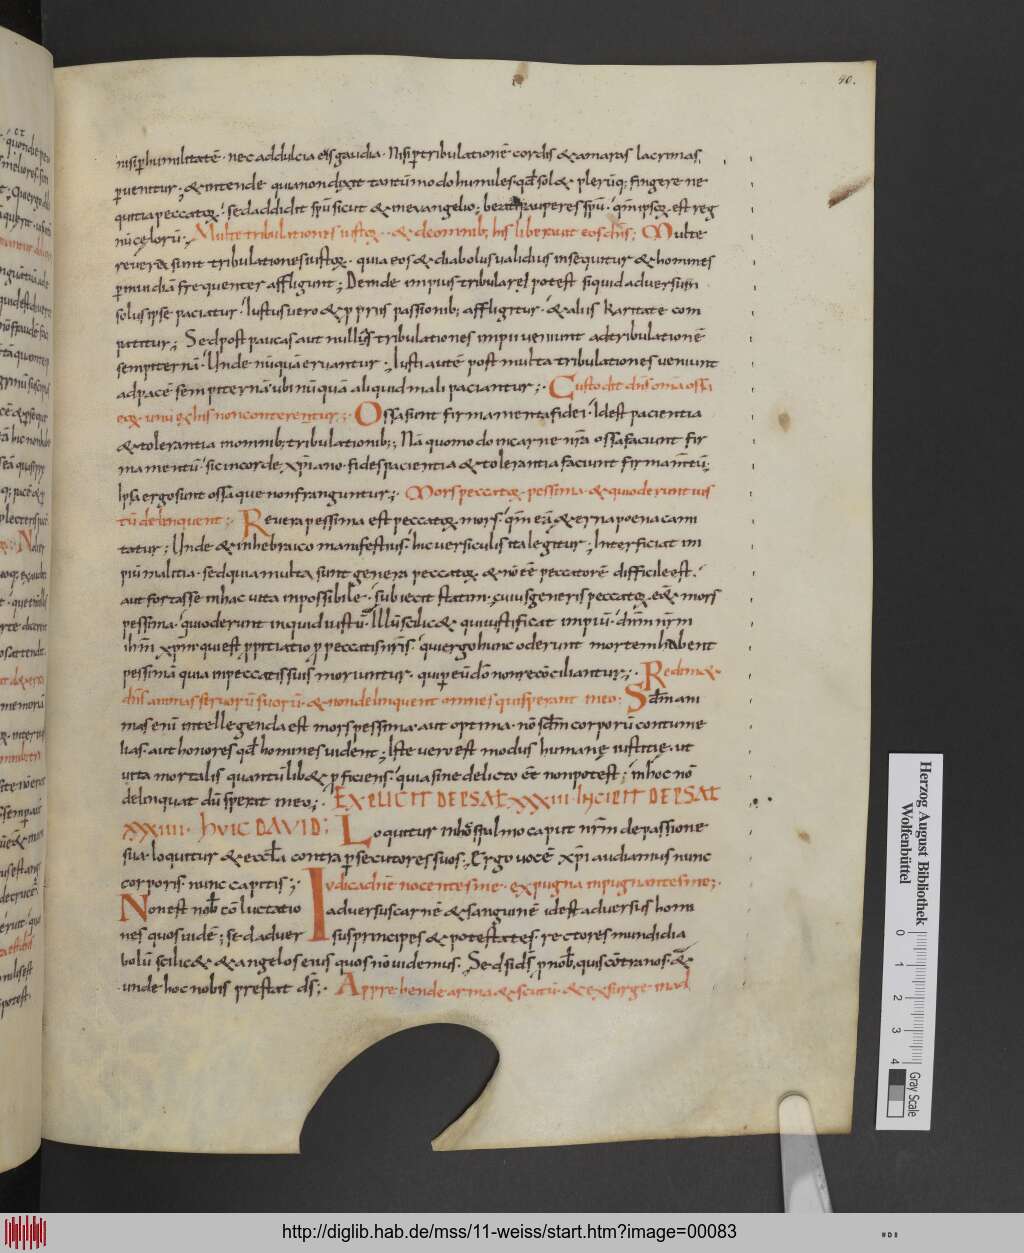 40.
nisi p humilitatē · nec ad dulcia eius gaudia · Nisi p tribulationē cordis & amaras lacrimas
pueniatur ; & intende quia non dixit tantū modo humiles · qđ sol& plerūq; fingere ne
quitia peccatoꝝ · sed addidit spū sicut & in evangelio ; beati pauperes spū · qm̄ ipsoꝝ est reg
nū cęlorū · Multe tribulationes iustoꝝ · & de omnib; his liberavit eos dn̄s ; Multe
revera sunt tribulationes iustoꝝ · quia eos & diabolus validius insequitur & homines
p invidiā frequenter affligunt ; Deinde impius tribulari potest si quid adversum
solus ipse patiatur · Iustus vero & p priis passionib; affligitur · & aliis karitate com
patitur ; Sed post paucas aut nullas tribulationes impii veniunt ad tribulationē
sempiternā · Unde nūquā eruantur · Iusti autē post multa tribulationes veniunt
ad pacē sempiternā ubi nūquā aliquid mali patiantur ; Custodit dn̄s om̄a ossa
eoꝝ unū ex his non conterentur ; Ossa sunt firmamenta fidei · Idest pacientia
& tolerantia in omnib; tribulationib; ; Nā quomodo in carne nr̄a ossa faciunt fir
mamentū · sic in corde xp̄iano · fides pacientia & tolerantia faciunt firmam̄tū ;
Ipsa ergo sunt ossa que non franguntur ; Mors peccatoꝝ pessima · & qui oderunt ius
tū delinquent ; Revera pessima est peccatoꝝ mors · qm̄ eā & erna poena comi
tatur ; Unde & in hebraico manifestius · hic versiculus ita legitur ; Interficiat im
piū malitia · sed quia multa sunt genera peccatoꝝ & nō tē peccatorē difficile est ·
aut fortasse in hac vita inpossibile · subiecit statim · cuius generis peccatoꝝ eē& mors
pessima · qui oderunt inquid iustū · Illū scilic& qui iustificat impiū · dn̄m nr̄m
ih̄m xp̄m · qui est ppitiatio p peccatis nr̄is · qui ergo hunc oderunt mortem habent
pessimā quia in peccatis suis moriuntur · qui p eū dō non reconciliantur ; Redim&
dn̄s animas servorū suorū · & non delinquent omnes qui sperant in eo · Sc̄dm ani
mas enī intellegenda est mors pessima · aut optima · nō sc̄dm corporū contume
lias · aut honores qđ homines vident ; Iste vero est modus humanę iustitię · ut
vita mortalis quantūlib& pficiens · quia sine delicto eē non potest ; in hoc nō
delinquat dū sperat in eo ; EXPLICIT DE PSAL XXXIII · INCIPIT DE PSAL
XXXIIII · HVIC DAVID ; Loquitur in hoc psalmo caput nr̄m de passione
sua · loquitur & eccl̄a contra psecutores suos · Ergo vocē xp̄i audiamus nunc
corporis · nunc capitis ; Iudica dn̄e nocentes me · expugna inpugnantes me ;
Non est nob̄ cōluctatio adversus carnē & sanguinē idest adversus homi
nes quos vidē ; sed adversus principes & potestates · rectores mundi dia
bolū scilic& & angelos eius quos nō videmus · Sed si dš p nob̄ · quis cōtra nos · &
unde hoc nobis prestat dš ; Apprehende arma & scutū · & exsurge in ad
Herzog August Bibliothek
Wolfenbüttel
0 1 2 3 4
Gray Scale
http://diglib.hab.de/mss/11-weiss/start.htm?image=00083